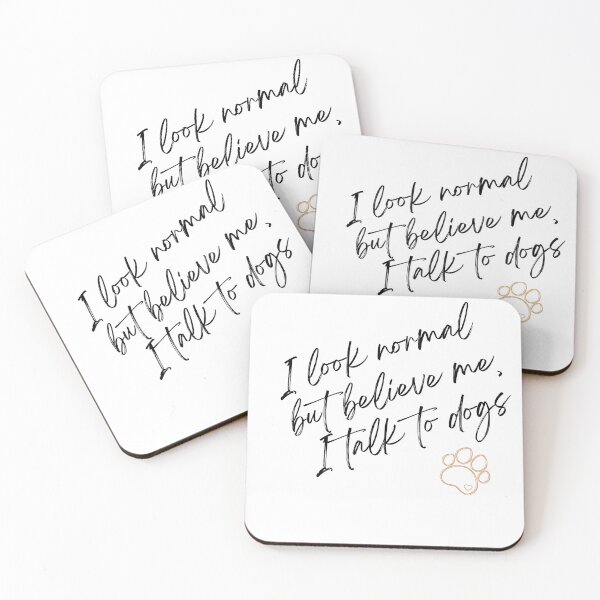 I look normal
but believe me,
to dogs
I look normal
but believe me,
I talk to dogs
I look normal
but believe me,
I talk to dogs
I look normal
but believe me,
I talk to dogs